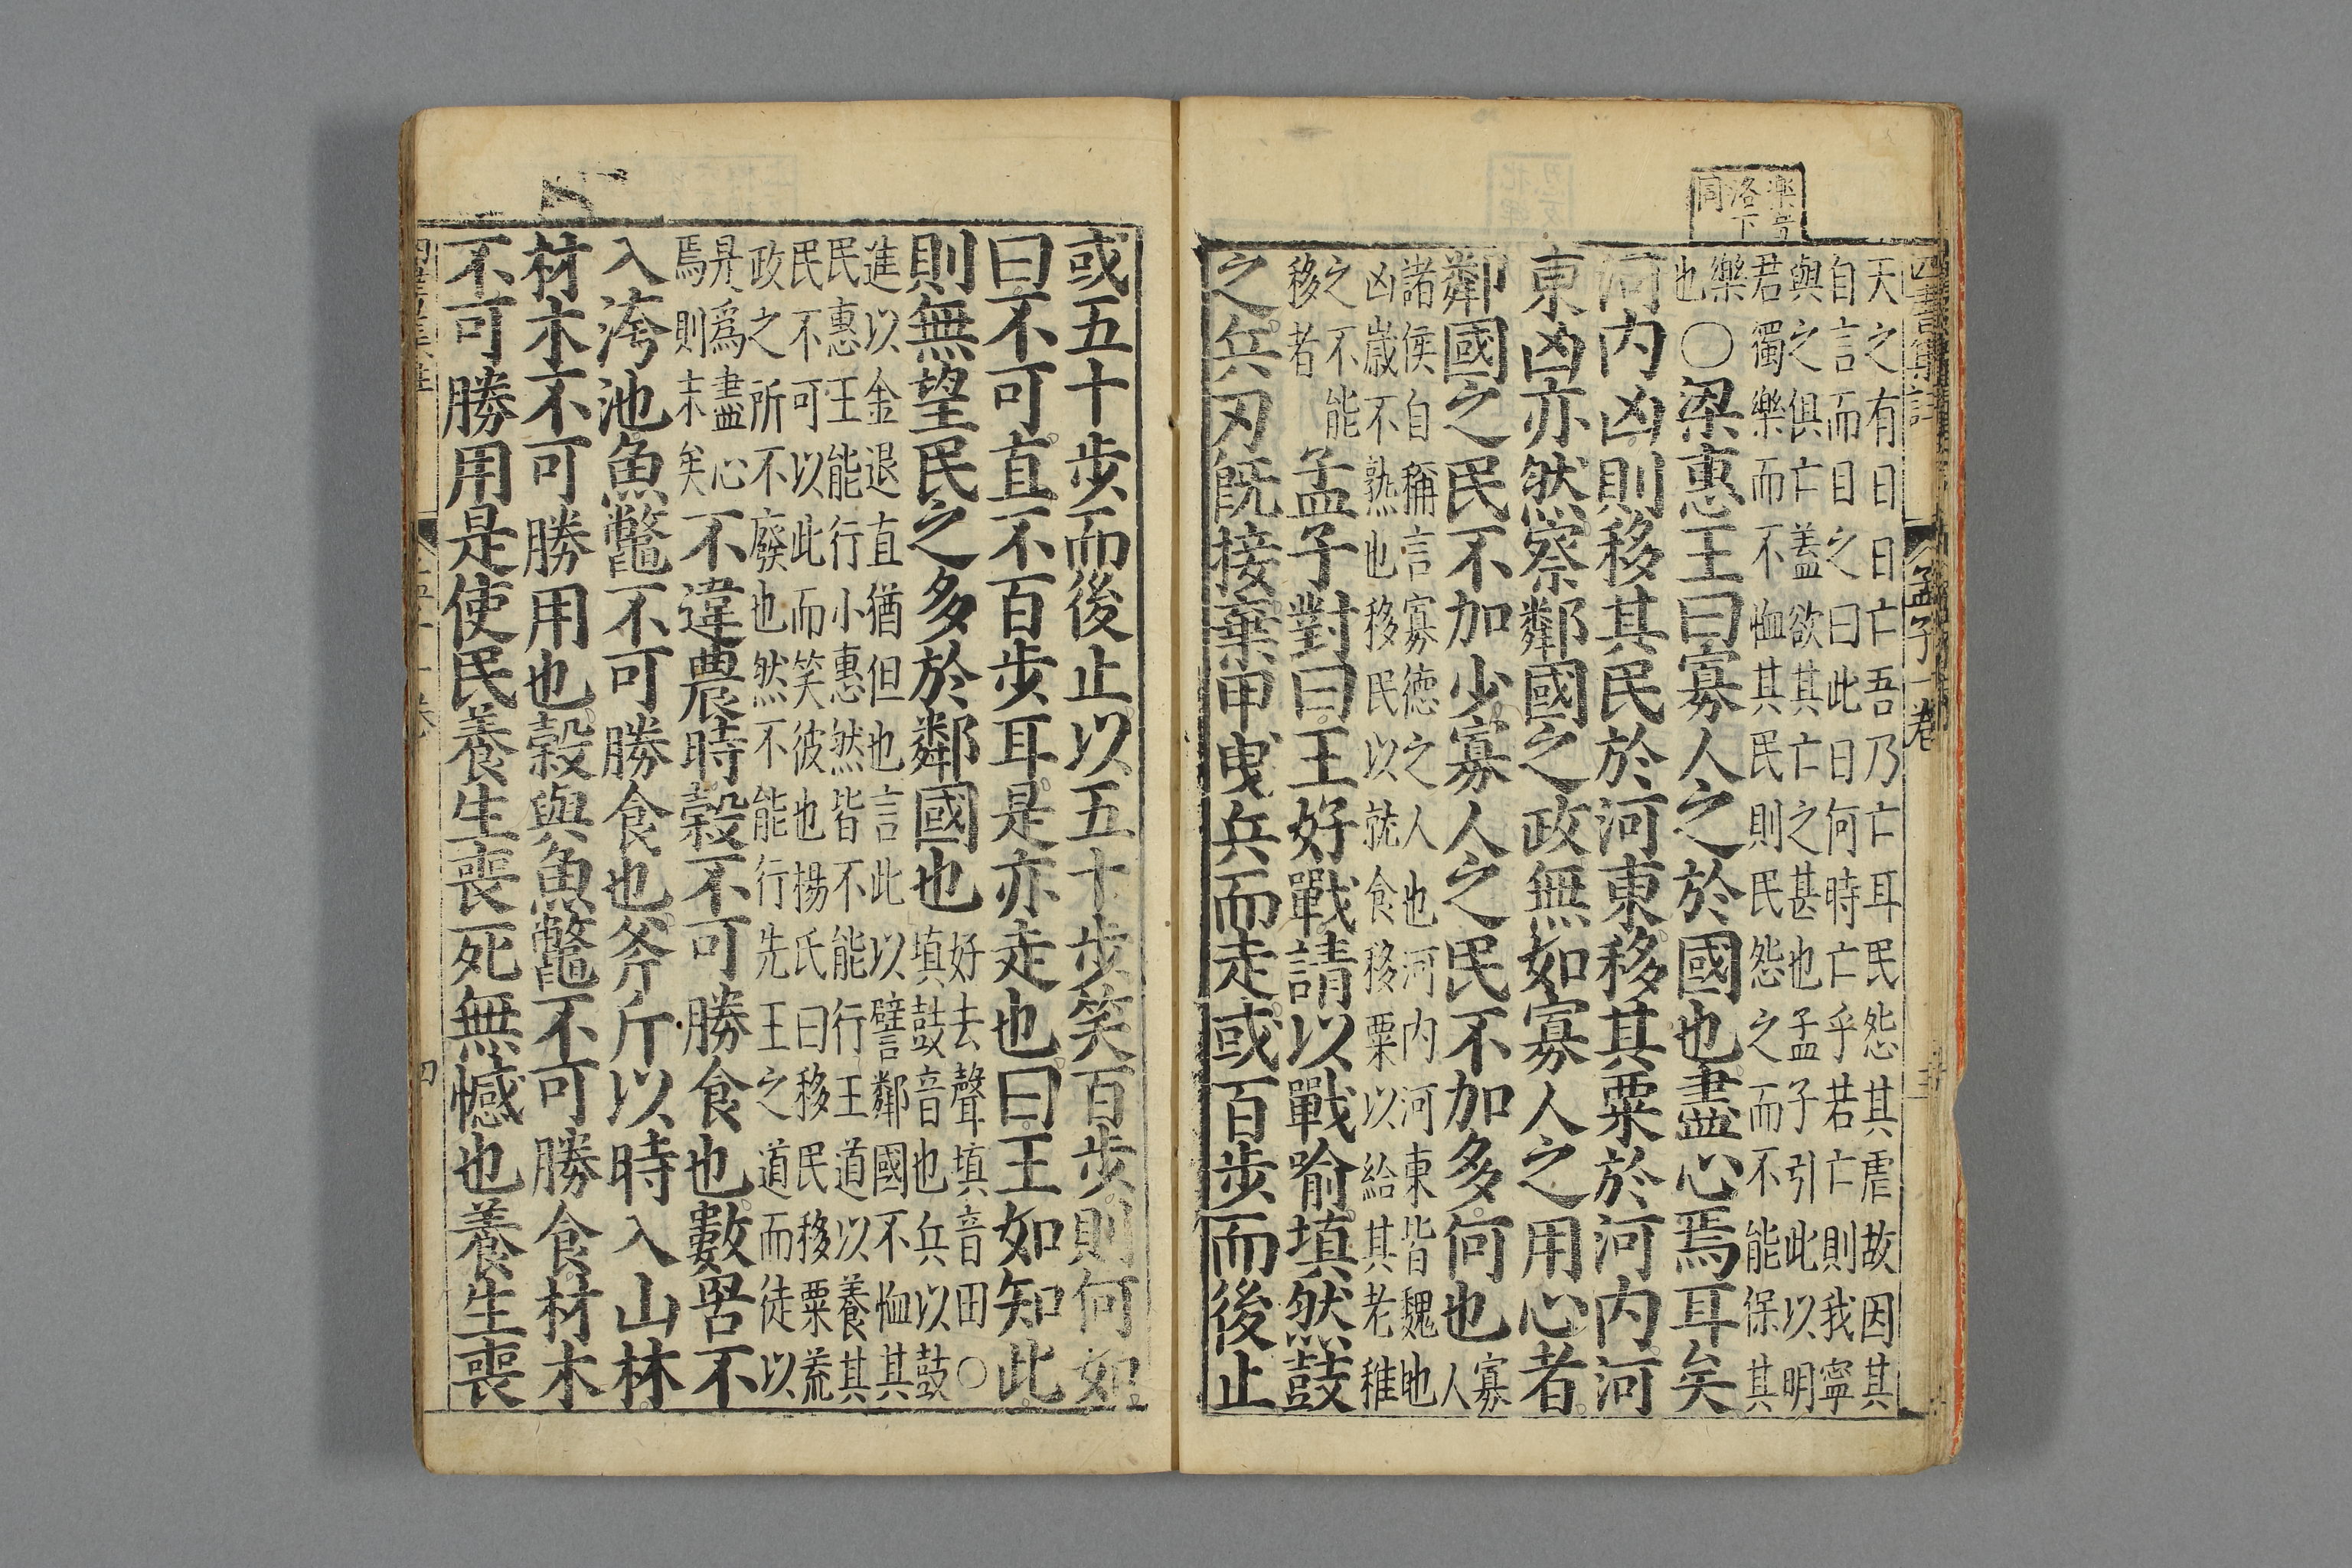 樂音
洛下
同
四書集註 孟子一卷
天之有日日亡吾乃亡耳民怨其虐故因其
自言而目之曰此日何時亡乎若亡則我寧
與之俱亡蓋欲其亡之甚也孟子引此以明
君獨樂而不恤其民則民怨之而不能保其
樂
也
〇梁惠王曰寡人之於國也盡心焉耳矣
河內凶則移其民於河東移其粟於河內河
東凶亦然察鄰國之政無如寡人之用心者
鄰國之民不加少寡人之民不加多何也
寡
人
諸侯自稱言寡德之人也河內河東皆魏地
凶歲不熟也移民以就食移粟以給其老稚
之不能
移者
孟子對曰王好戰請以戰喻填然鼓
之兵刃既接棄甲曳兵而走或百步而後止
或五十步而後止以五十步笑百步則何如
曰不可直不百步耳是亦走也曰王如知此
則無望民之多於鄰國也
好去聲填音田〇
填鼓音也兵以鼓
進以金退直猶但也言此以譬鄰國不恤其
民惠王能行小惠然皆不能行王道以養其
民不可以此而笑彼也楊氏曰移民移粟荒
政之所不廢也然不能行先王之道而徒以
是爲盡心
焉則末矣
不違農時穀不可勝食也數罟不
入洿池魚鼈不可勝食也斧斤以時入山林
材木不可勝用也穀與魚鼈不可勝食材木
不可勝用是使民養生喪死無憾也養生喪
四